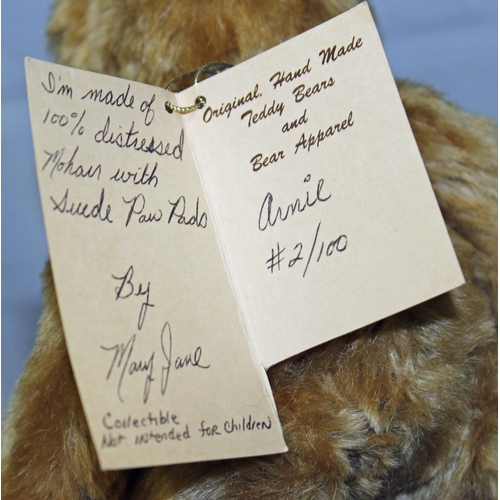 I'm made of
100% distressed
Mohair with
Suede Paw Pads
By
Mary Jane
Collectible
Not intended for Children
Original. Hand Made
Teddy Bears
and
Bear Apparel
Arnie
#2/100